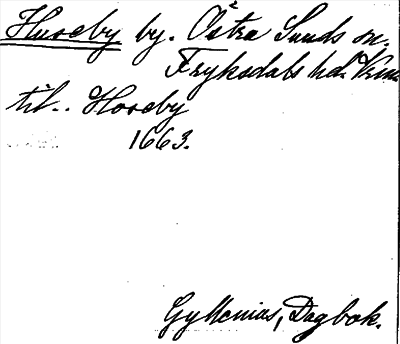 Huseby by. Östra Sunds sn.
Fryksdals hd.
till. Hoseby
1663.
Gyllenius, Dagbok.